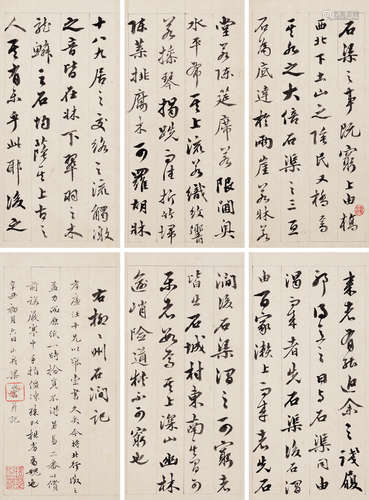 石渠之事既窮上由橋
西北下土山之陰民又橋焉
其水之大倍石渠之三亙
石為底達於兩崖若牀若
堂若陳筵席若限閫奧
水平布其上流若織紋響
若操琴揭跣而往折竹掃
陳葉排腐木可羅胡牀
十八九居之交絡之流觸激
之音皆在牀下翠羽之木
龍鱗之石均蔭其上古之
人其有樂乎此耶後之
來者有能追余之踐履
耶得之之日與石渠同由
渴而來者先石渠後石澗
由百家瀨上者先石
澗後石渠澗之可窮者
皆出石城村東南其間可
樂者數焉其上深山幽林
逾峭險道狹不可窮也
右柳柳州石澗記
辛丑初月六日